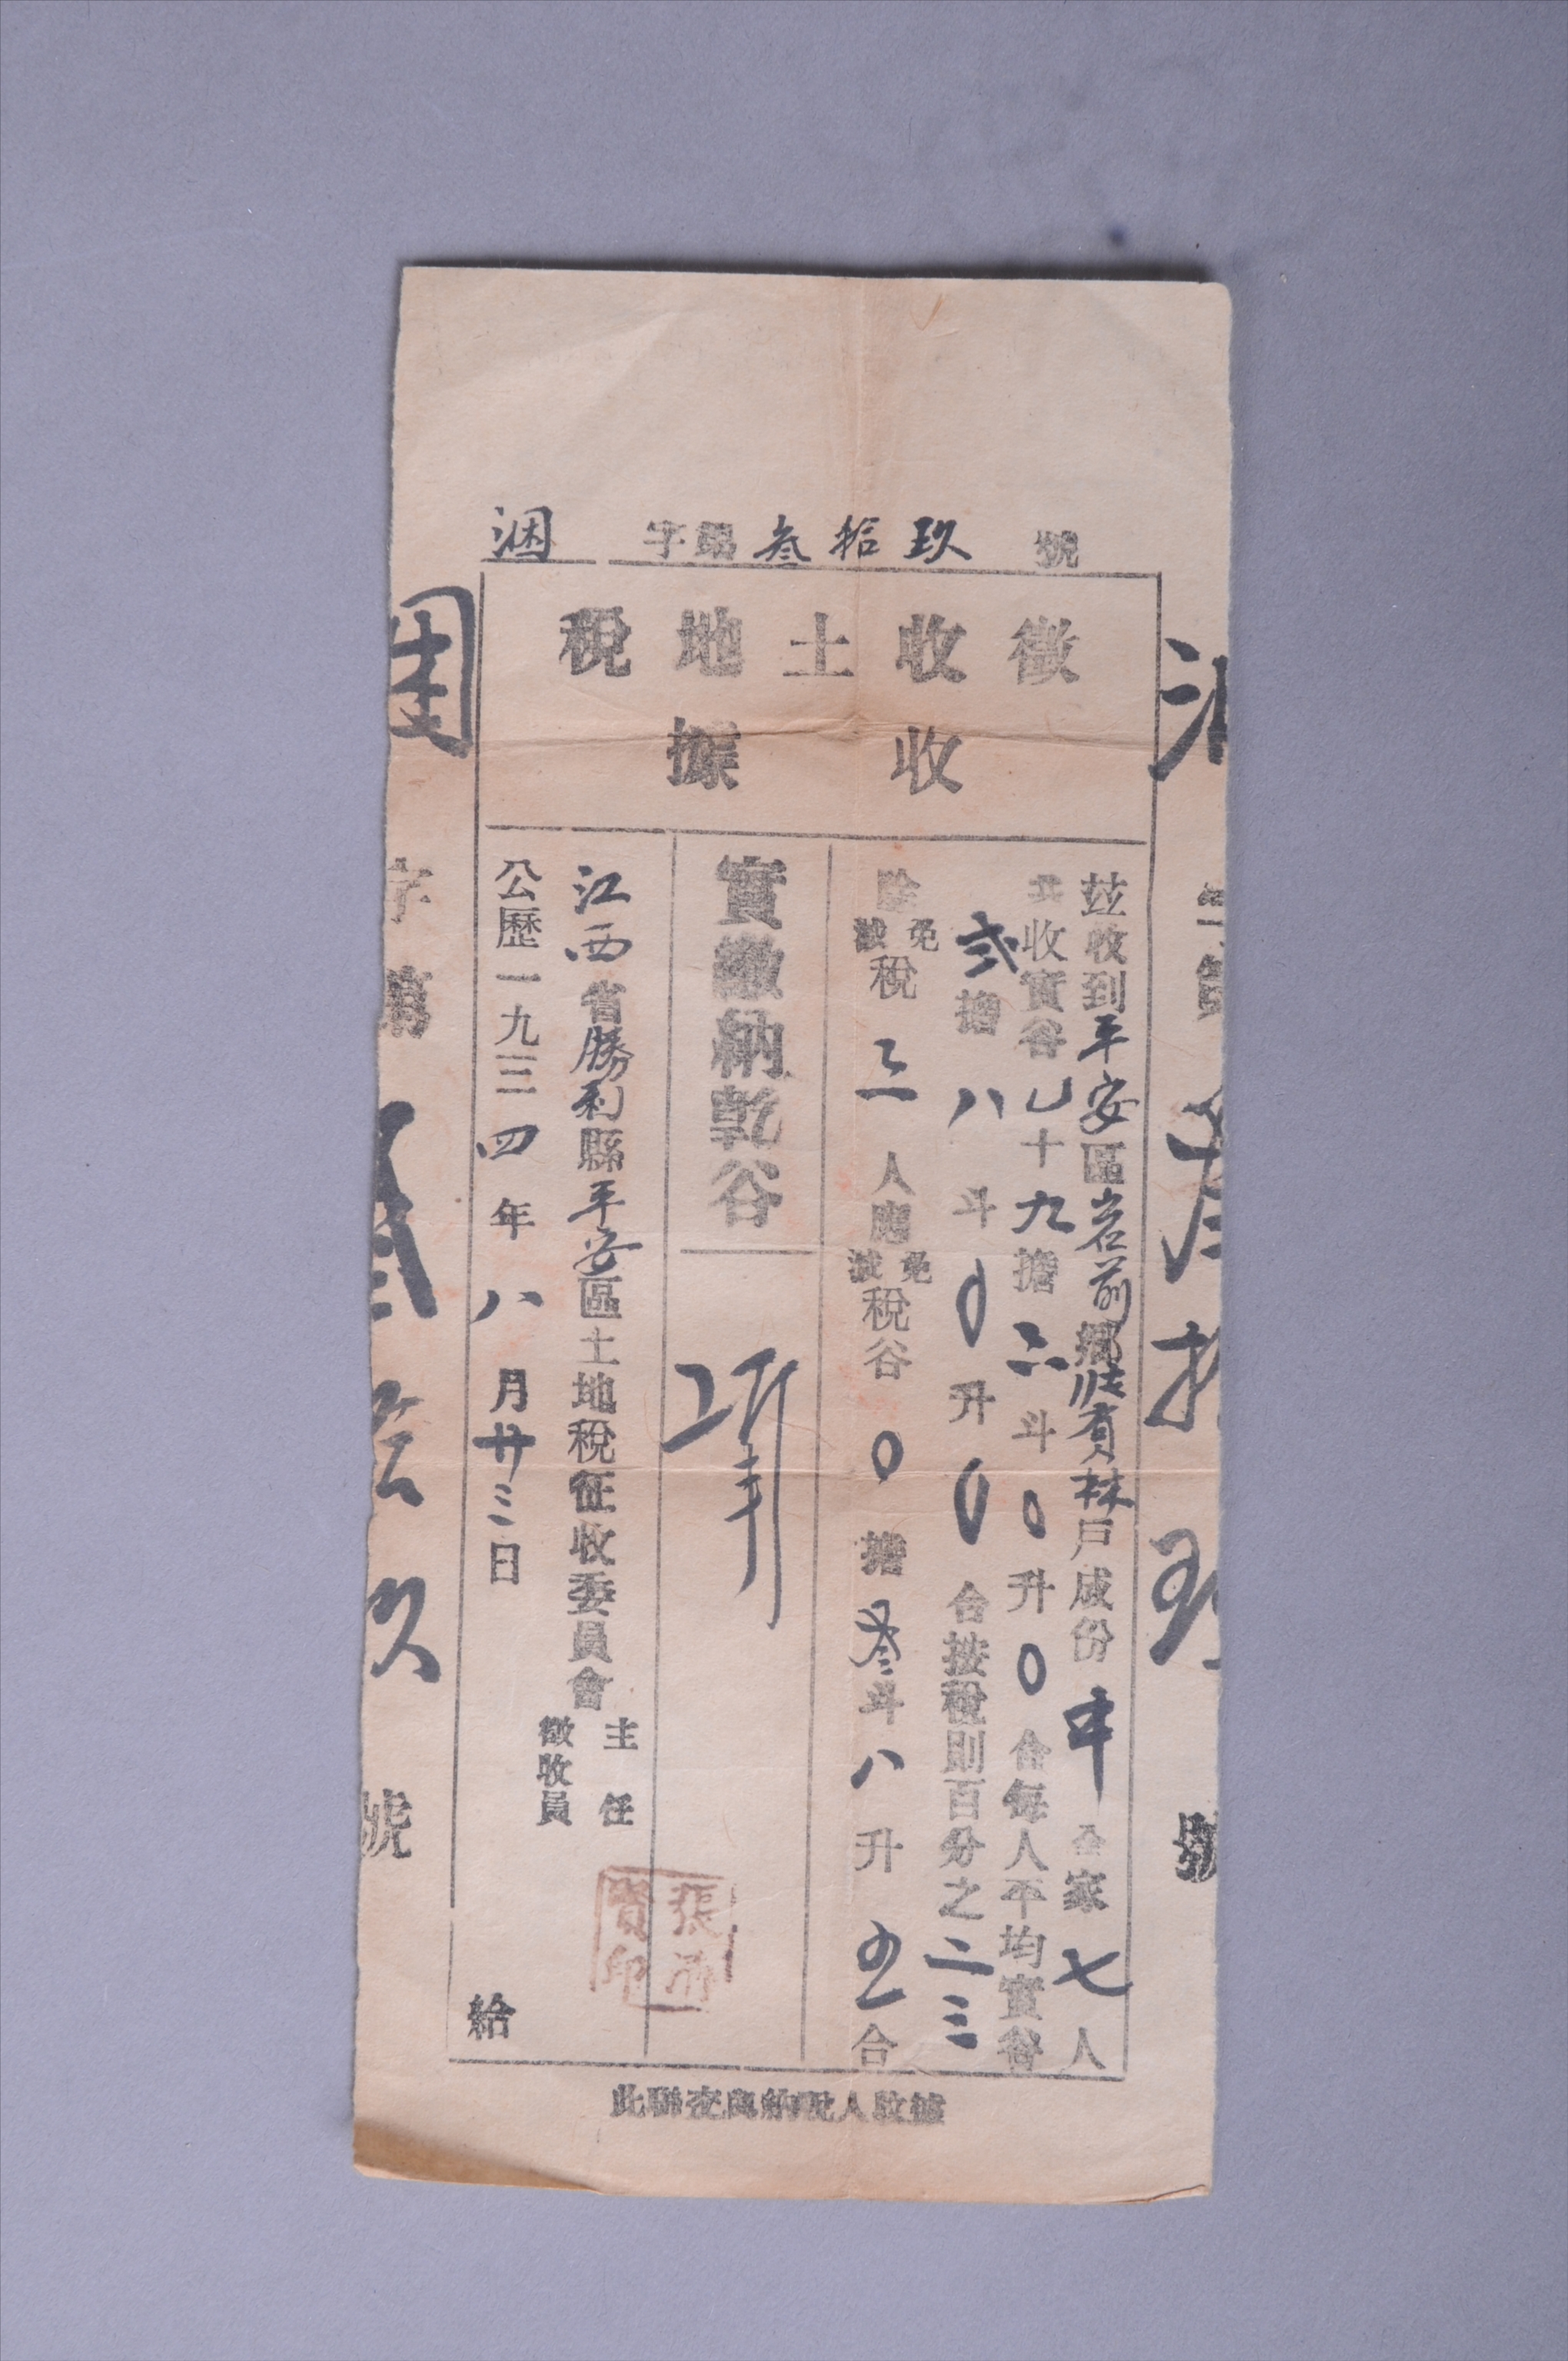 涃 字第叁拾玖 號
徵收土地稅
收據
茲收到平安區岩前鄉 賓林戶成份中 全家七人
共收實谷 十九擔六斗0升0合每人平均實谷
弍擔八斗0升0合按稅則百分之二三
除免減稅三人應免減稅谷0擔叁斗八升五合
實繳納乾谷
江西省勝利縣平安區土地稅征收委員會主任 徵收員
公歷一九三四年八月廿三日 給
此聯交與納稅人收據
字第 號
字第叁拾玖號